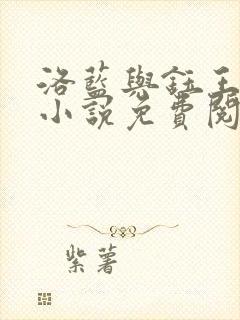 洛藍與鈺王
小說免費閱
紫薯